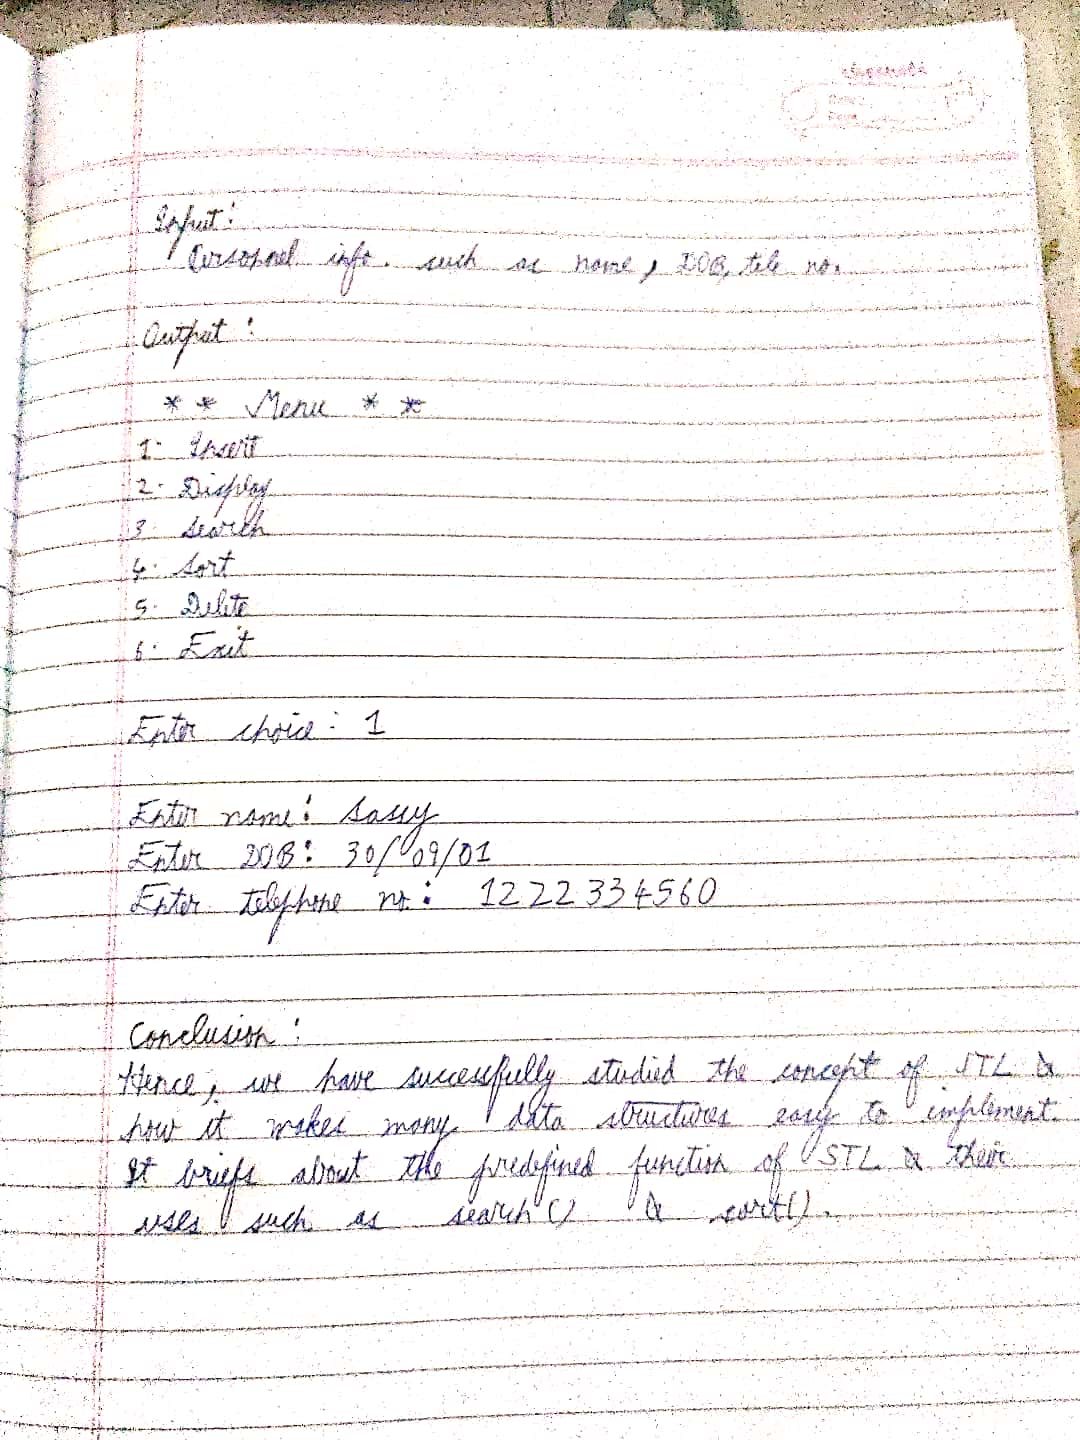 Input:
Personnel info. such as name, DOB, tele no.
Output:
* * Menu * *
1. Insert
2. Display
3. Search
4. Sort
5. Delete
6. Exit
Enter choice: 1
Enter name: Sassy
Enter DOB: 30/09/01
Enter telephone no.: 1222334560
Conclusion:
Hence, we have successfully studied the concept of STL &
how it makes many data structures easy to implement.
It briefs about the predefined function of STL & their
uses such as search() & sort().